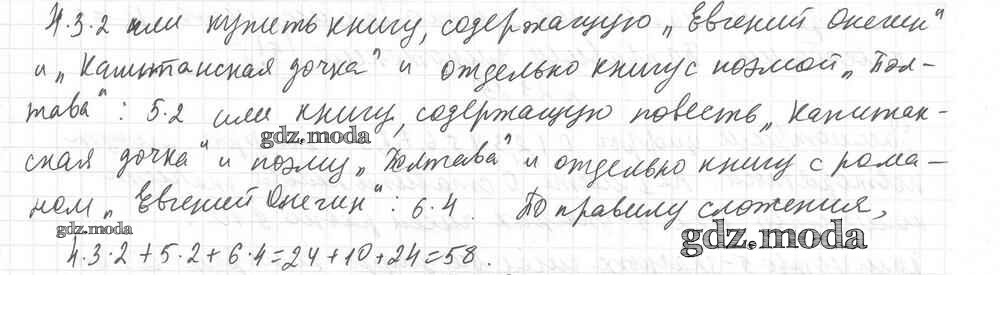 4·3·2 или купить книгу, содержащую „Евгений Онегин"
и „Капитанская дочка" и отдельно книгу с поэмой „Пол-
тава": 5·2 или книгу, содержащую повесть „Капитан-
gdz.moda
ская дочка" и поэму „Полтава" и отдельно книгу с рома-
ном „Евгений Онегин": 6·4. По правилу сложения,
gdz.moda
gdz.moda
4·3·2+5·2+6·4=24+10+24=58.